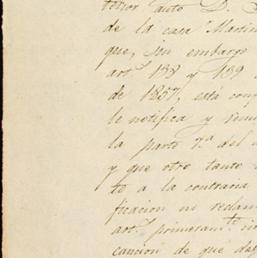 terior auto D.
de la casa Martin
que, sin embargo
art.s 158 y 159
de 1857, está conf
le notifica y
la parte 7.a del
y que otro tanto
te a la contraria
ficacion no reclam
art.
cancion de que